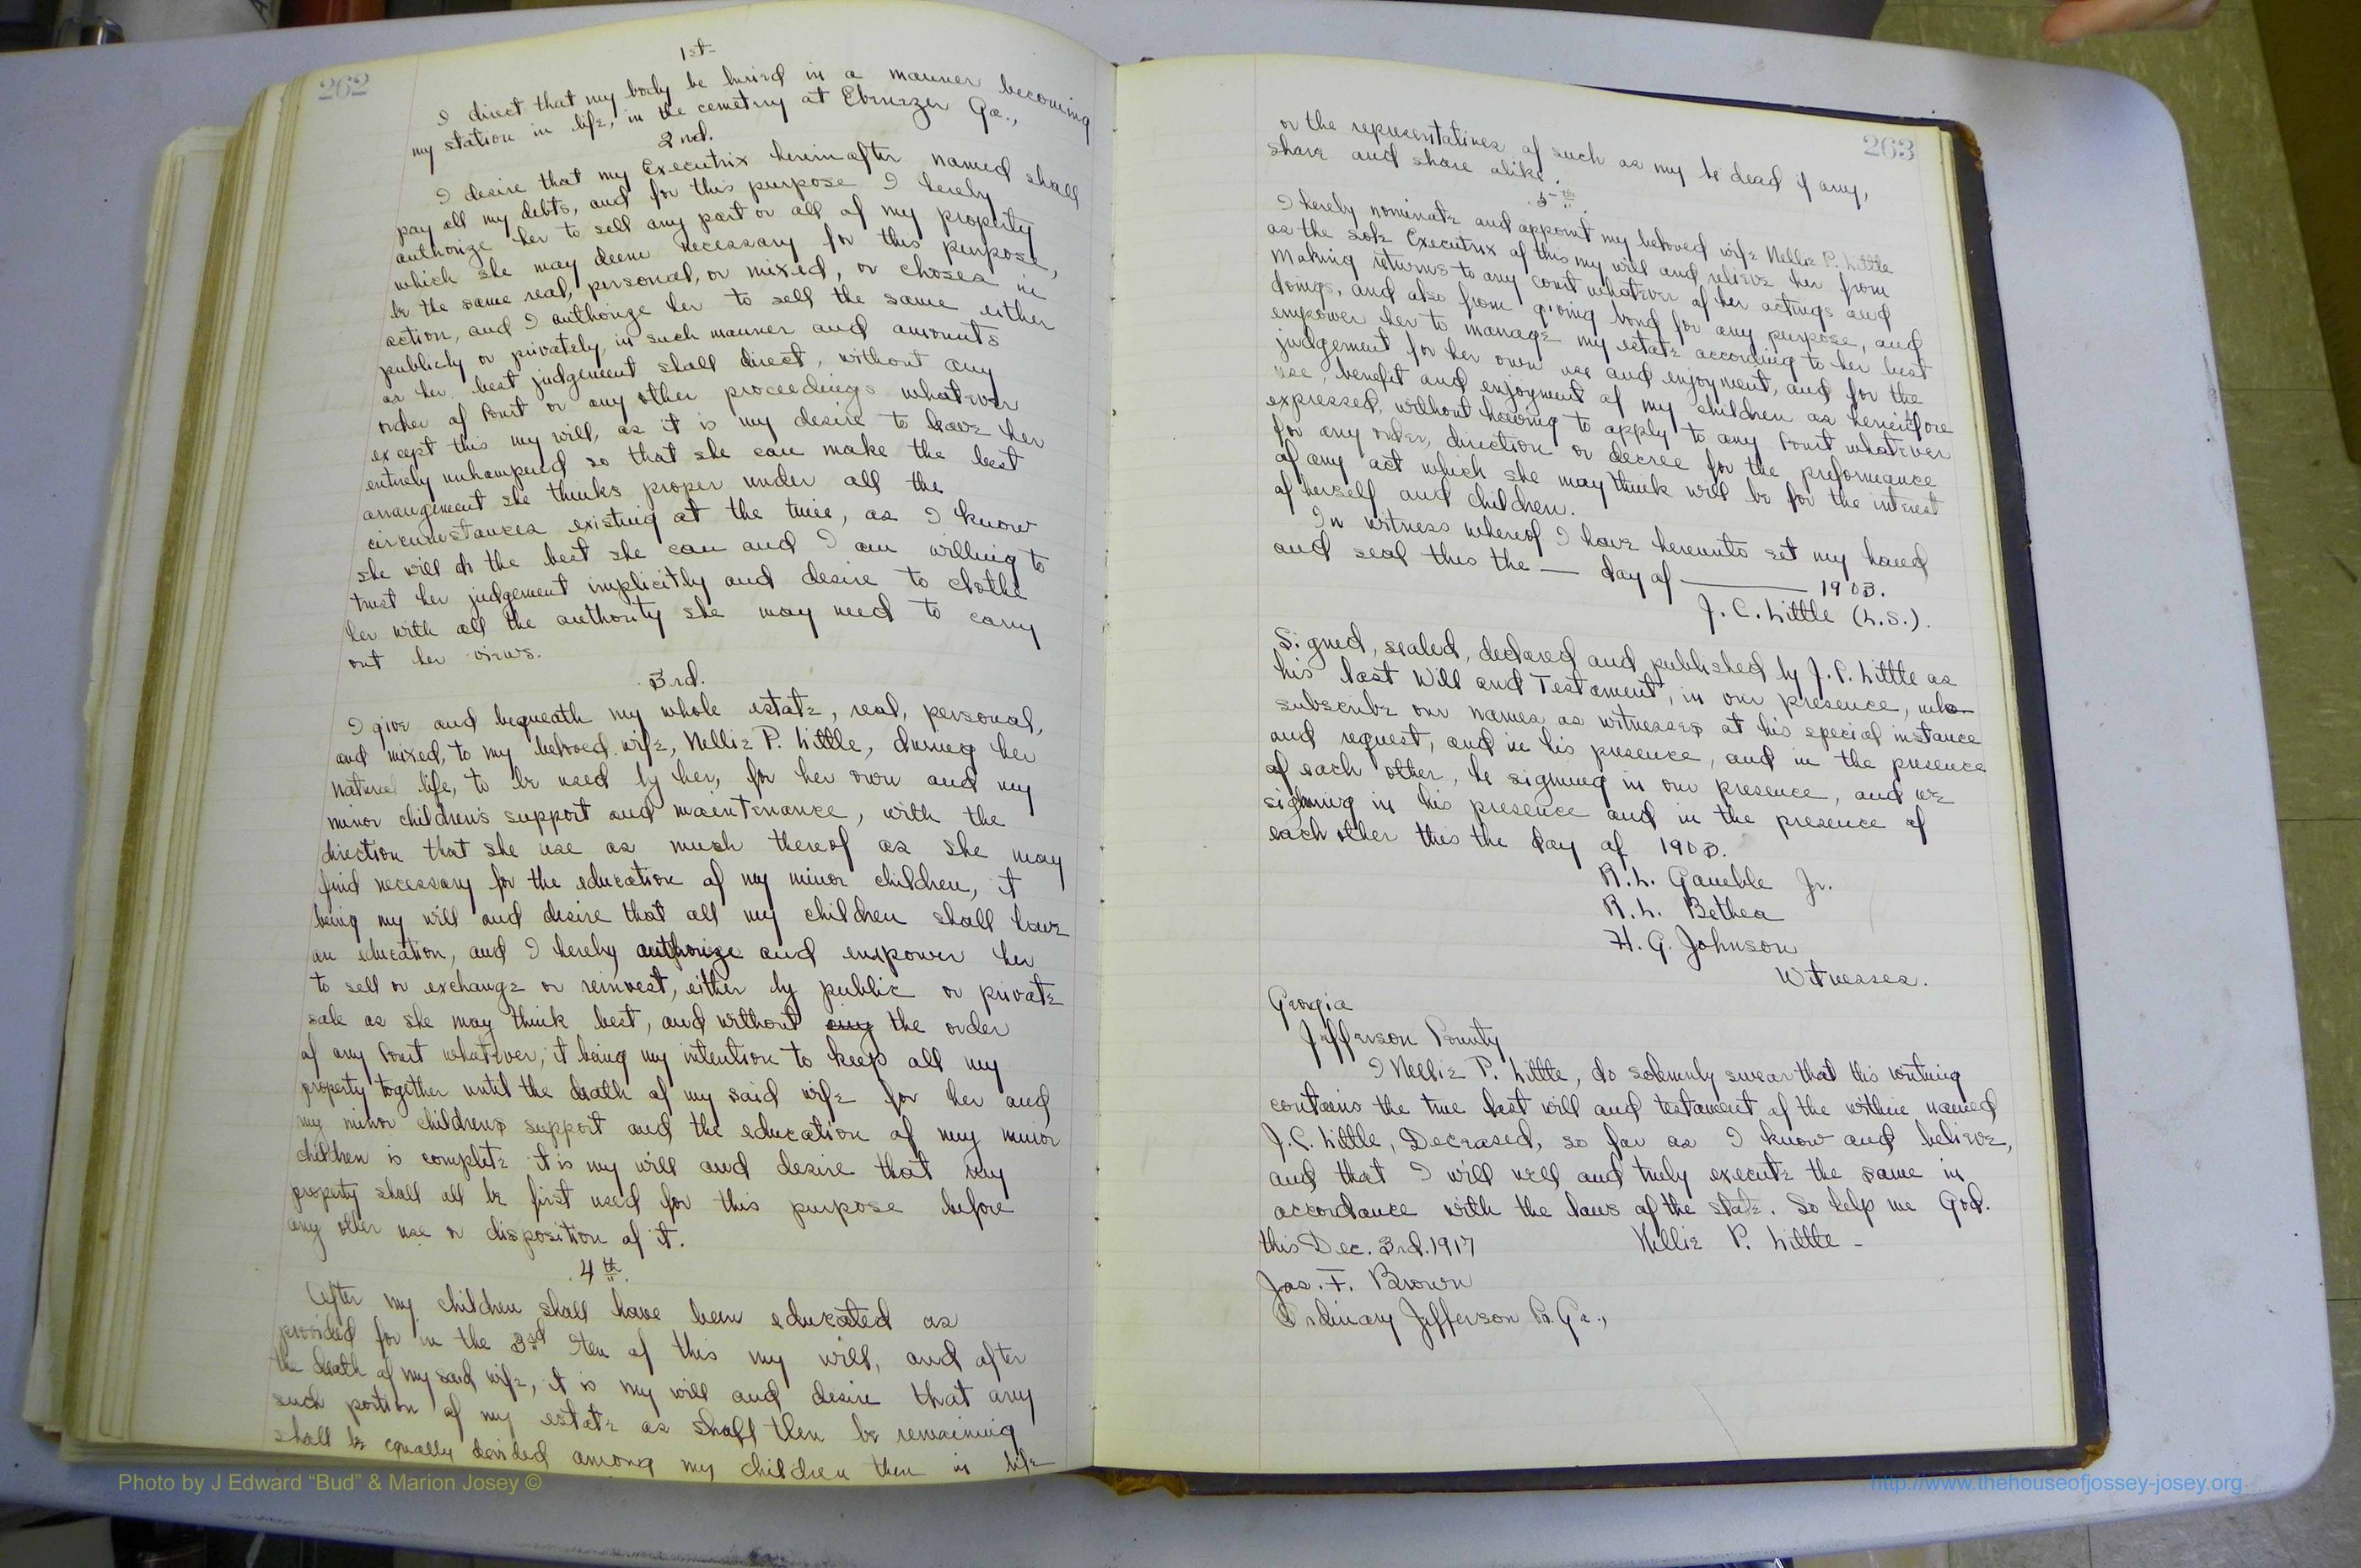 262
1st
I direct that my body be buried in a manner becoming
my station in life, in the cemetry at Ebenezer Ga.,
2nd.
I desire that my Executrix hereinafter named shall
pay all my debts, and for this purpose I hereby
authorize her to sell any part or all of my property
which she may deem necessary for this purpose,
be the same real, personal, or mixed, or choses in
action, and I authorize her to sell the same either
publicly or privately, in such manner and amounts
as her best judgement shall direct, without any
order of Court or any other proceedings whatever
except this my will, as it is my desire to leave her
entirely unhampered so that she can make the best
arrangement she thinks proper under all the
circumstances existing at the time, as I know
she will do the best she can and I am willing to
trust her judgement implicitly and desire to clothe
her with all the authority she may need to carry
out her views.
3rd.
I give and bequeath my whole estate, real, personal,
and mixed, to my beloved wife, Nellie P. Little, during her
natural life, to be used by her, for her own and my
minor children's support and maintenance, with the
direction that she use as much thereof as she may
find necessary for the education of my minor children, it
being my will and desire that all my children shall have
an education, and I hereby authorize and empower her
to sell or exchange or reinvest, either by public or private
sale as she may think best, and without any the order
of any Court whatever, it being my intention to keep all my
property together until the death of my said wife for her and
my minor childrens support and the education of my minor
children is complete it is my will and desire that my
property shall all be first used for this purpose before
any other use or disposition of it.
4th.
After my children shall have been educated as
provided for in the 3rd Item of this my will, and after
the death of my said wife, it is my will and desire that any
such portion of my estate as shall then be remaining
shall be equally devided among my children then in life
263
or the representatives of such as my be dead if any,
share and share alike.
5th.
I hereby nominate and appoint my beloved wife Nellie P. Little
as the sole Executrix of this my will and relieve her from
making returns to any court whatever of her actings and
doings, and also from giving bond for any purpose, and
empower her to manage my estate according to her best
judgement for her own use and enjoyment, and for the
use, benefit and enjoyment of my children as heretofore
expressed, without having to apply to any Court whatever
for any order, direction or decree for the preformance
of any act which she may think will be for the interest
of herself and children.
In witness whereof I have hereunto set my hand
and seal this the — day of — 1903.
J. C. Little (L.S.).
Signed, sealed, declared and published by J. C. Little as
his last Will and Testament, in our presence, who
subscribe our names as witnesses at his special instance
and request, and in his presence, and in the presence
of each other, he signing in our presence, and we
signing in his presence and in the presence of
each other this the day of 1903.
R. L. Gamble Jr.
R. L. Bethea
H. G. Johnson
Witnesses.
Georgia
Jefferson County
I Nellie P. Little, do solemnly swear that this writing
contains the true last will and testament of the within named
J. C. Little, Deceased, so far as I know and believe,
and that I will well and truly execute the same in
accordance with the laws of the state. So help me God.
this Dec. 3rd. 1917 Nellie P. Little -
Jas. F. Brown
Ordinary Jefferson Co. Ga.,
Photo by J Edward “Bud” & Marion Josey ©
http://www.thehouseofjossey-josey.org